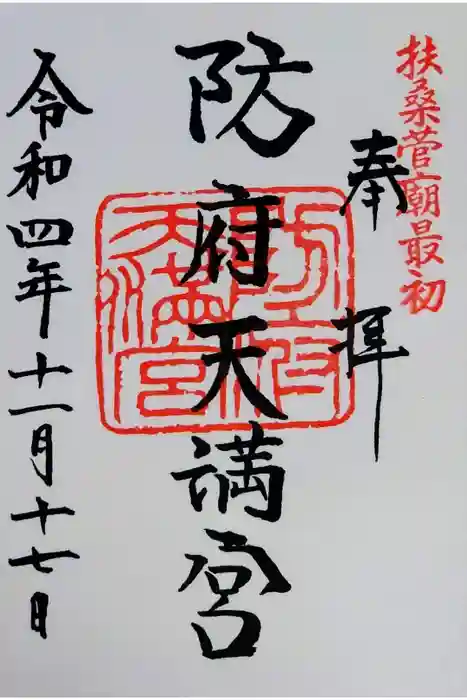 扶桑菅廟最初
奉拝
防府天満宮
令和四年十一月十七日